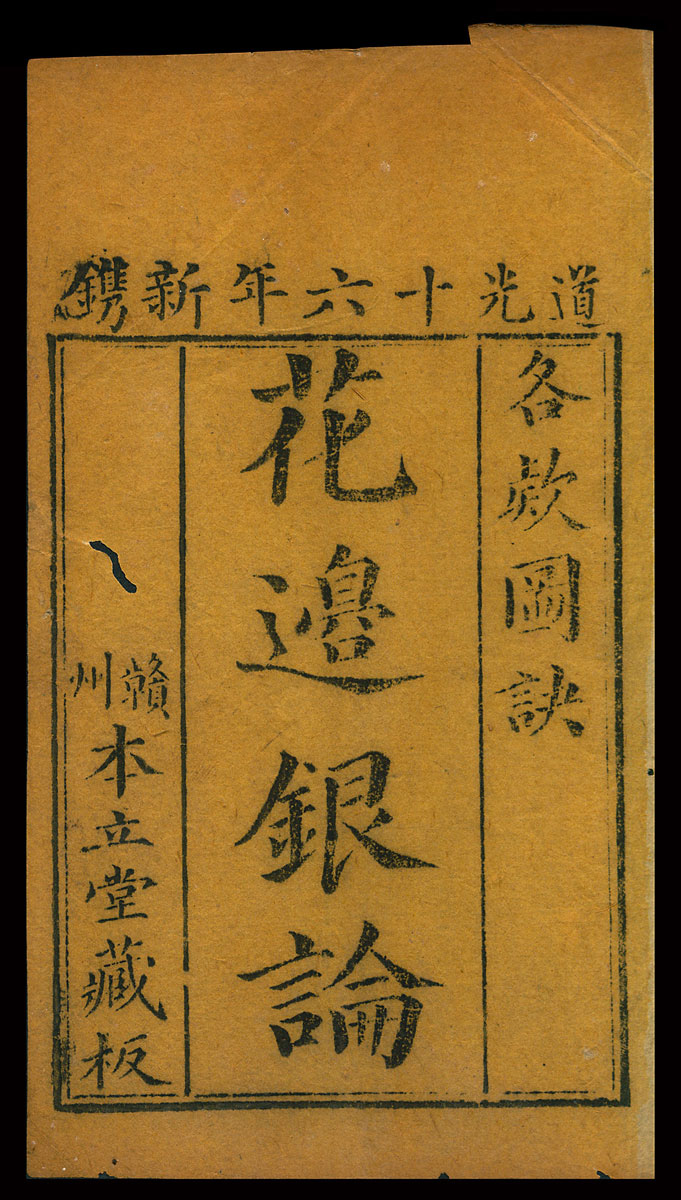 道光十六年新鐫
各欵圖訣
花邊銀論
贛州本立堂藏板